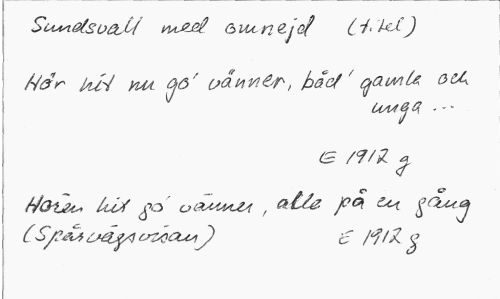 Sundsvall med omnejd (titel)
Hör hit nu go' vänner, båd' gamla och
unga ...
E 1912 g
Hören hit go' vänner, alle på en gång
(Spårvägsvisan) E 1912 g